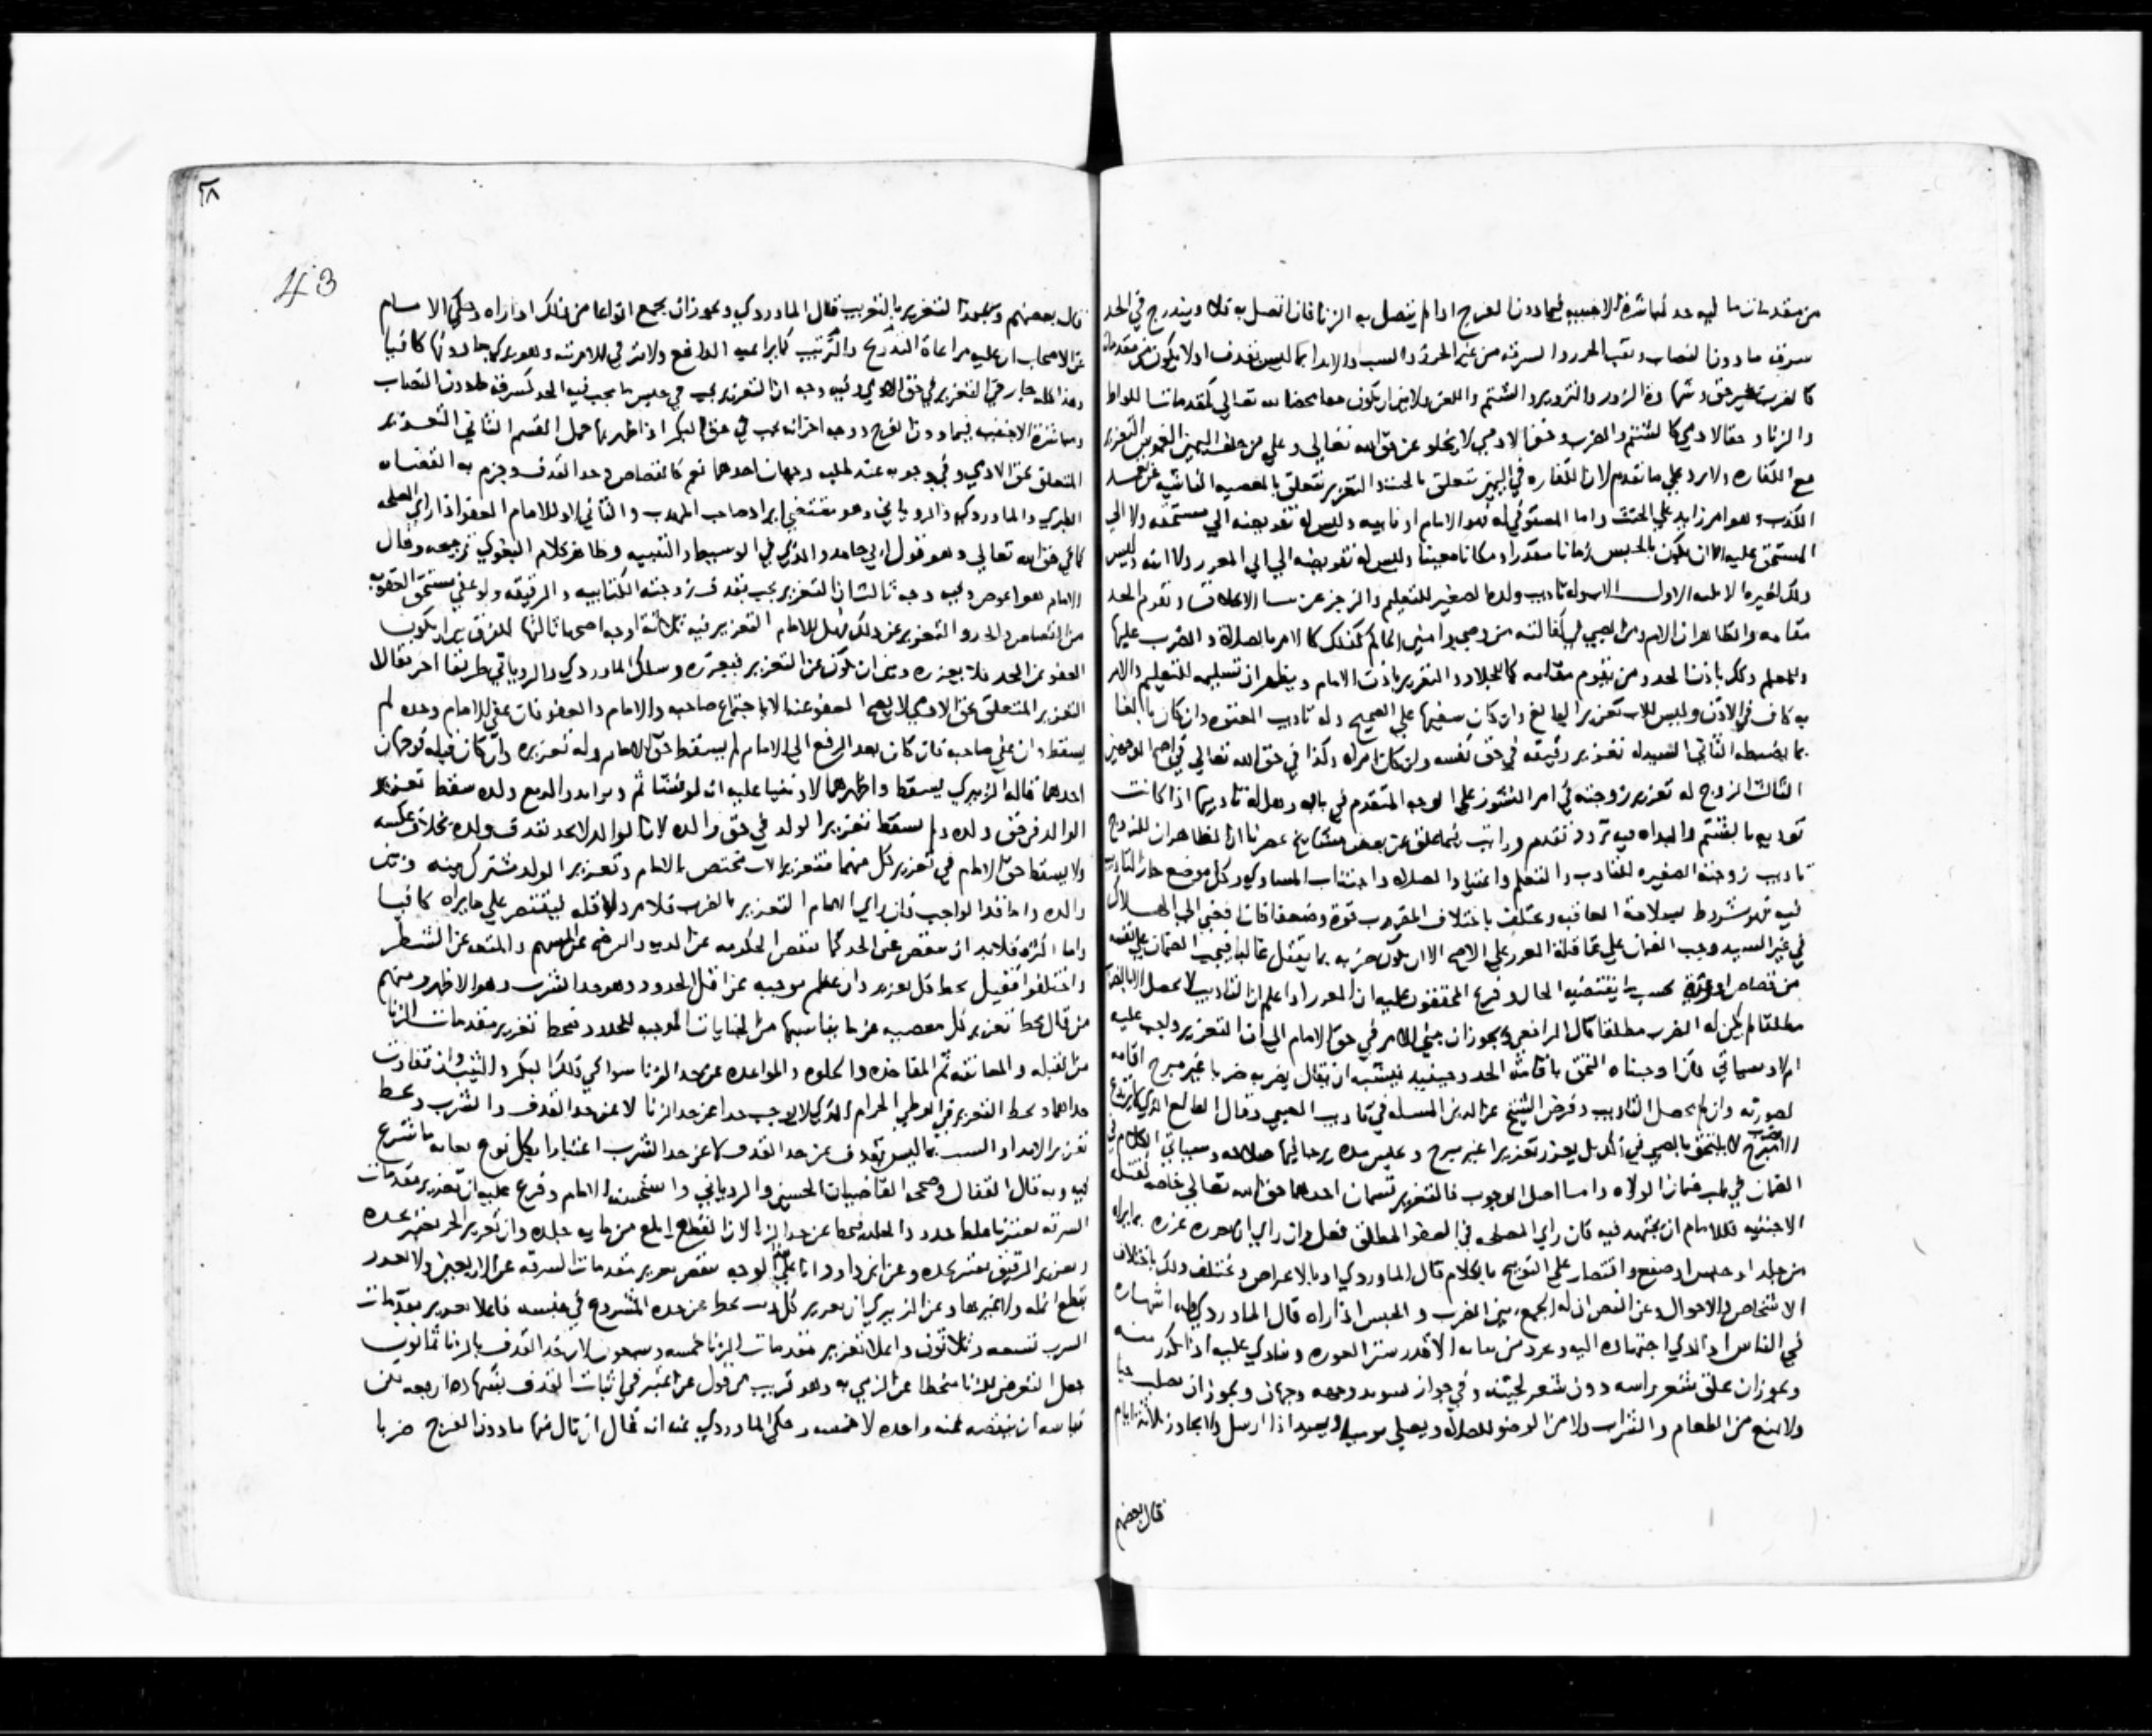 من مقدمات ما فيه حد كمباشرة الاجنبية فيما دون الفرج اذا لم يتصل به الزنا فان اتصل به فلا ويندرج في الحد
سرقة ما دون النصاب ونقب الحرز والسرقة من غير الحرز والسب والايذا بما ليس بقذف اولا يكون من مقدماته
كالضرب بغير حق وشهادة الزور والتزوير والشتم واللعن ولا فرق ان يكون حقا محضا لله تعالى كمقدمات اللواط
والزنا او حقا لادمي كالشتم والضرب وحق الادمي لا يخلو عن حق الله تعالى وعلى من حلف اليمين الغموس التعزير
مع الكفارة ولا يرد على ما تقدم لان الكفارة في اليمين تتعلق بالحنث والتعزير يتعلق بالمعصية الناشية عن تعمد
الكذب وهو امر زايد على الحنث واما المستوفي له فهو الامام او نايبه وليس له تفويضه الى مستحقه ولا الى
المستحق عليه الا ان يكون بالحبس زمانا مقدرا ومكانا معينا وليس له تفويضه الى المعزر ولا اليه وليس
ذلك لغيره الا ثلثة الاول الاب له تاديب ولده الصغير للتعليم والزجر عن سيئ الاخلاق وتقوم الجد
مقامه والظاهر ان الام ومن الصبي في كفالته من وصي وامين الحاكم كذلك كالامر بالصلاة والضرب عليها
وللمعلم ذلك باذن الجد ومن يقوم مقامه كالجلاد والتعزير باذن الامام ويظهر ان تسليمه للتعليم والامر
به كاف في الاذن وليس للاب تعزير البالغ وان كان سفيها على الصحيح وله تاديب المعتوه وان كان بالغا
بما يضبطه الثاني السيد له تعزير رقيقه في حق نفسه ولو كان امراة وكذا في حق الله تعالى في اصح الوجهين
الثالث الزوج له تعزير زوجته في امر النشوز على الوجه المتقدم في بابه وهل له تاديبها اذا كانت
توذيه بالشتم والبذاءة فيه تردد تقدم ورايت فيما علق عن بعض مشايخ عصرنا ان الظاهر ان للزوج
تاديب زوجته الصغيرة للتاديب والتعلم واعتياد الصلاة واجتناب المساوي وكل موضع جاز التاديب
فيه فهو مشروط بسلامة العاقبة ويختلف باختلاف المضروب قوة وضعفا فان افضى الى الهلاك
في غير السيد وجب الضمان على عاقلة المعزر على الاصح الا ان يكون ضربه بما يقتل غالبا فيجب الضمان على نفسه
من قصاص او دية بحسب ما يقتضيه الحال وفرع المحققون عليه ان المعزر اذا علم ان التاديب لا يحصل الا بالضرب
مطلقا لم يكن له الضرب مطلقا قال الرافعي ويجوز ان يبنى الامر في حق الامام الى ان التعزير واجب عليه
ام لا وسياتي فان اوجبناه التحق باقامة الحد وحينيذ فيشبه ان يقال يضربه ضربا غير مبرح اقامة
لصورته وان لم يحصل التاديب وفرض الشيخ عز الدين المسلة في تاديب الصبي وقال البالغ الذي لا يزجره
الا المبرح لا يلتحق بالصبي في ذلك بل يعزر تعزيرا غير مبرح ويحبس مدة يرجى فيها صلاحه وسياتي الكلام في
الضمان في باب ضمان الولاة واما اصل الوجوب فالتعزير قسمان احدهما حق الله تعالى خاصة كقبلة
الاجنبية فللامام ان يجتهد فيه فان راي المصلحة في العفو المطلق فعل وان راي ان يعزره عزره بما يراه
من جلد او حبس او صفع واقتصار على التوبيخ بالكلام قال الماوردي او بالاعراض ويختلف ذلك باختلاف
الاشخاص والاحوال وعن النص ان له الجمع بين الضرب والحبس اذا راه قال الماوردي وله اشهاره
في الناس اذا ادى اجتهاده اليه ويجرد من ثيابه الا قدر ستر العورة وينادى عليه اذا تكرر منه
ويجوز ان يحلق شعر راسه دون شعر لحيته وفي جواز تسويد وجهه وجهان ويجوز ان يصلب حيا
ولا يمنع من الطعام والشراب ولا من الوضو للصلاة ويصلي موميا ويعيد اذا ارسل ولا يجاوز ثلاثة ايام
قال بعضهم
٣٨
43
قال بعضهم ويجوز التعزير بالتغريب قال الماوردي ويجوز ان يجمع انواعا من ذلك اذا راه وحكى الامام
عن الاصحاب ان عليه مراعاة التدريج والترتيب كما يراعيه الدافع ولا يترقى للامرتبة وهو يرى ما دونها كافيا
وهذا كله جار في التعزير في حق الادمي وفيه وجه ان التعزير يجب في جنس ما يجب فيه الحد كسرقة ما دون النصاب
ومباشرة الاجنبية فيما دون الفرج ووجه اخر انه يجب في حق البكر اذا ظهر بها حمل القسم الثاني التعزير
المتعلق بحق الادمي وفي وجوبه عند طلبه وجهان احدهما نعم كالقصاص وحد القذف وجزم به القضاة
الطبري والماوردي والروياني وهو مقتضى ايراد صاحب المهذب والثاني لا وللامام العفو اذا راي المصلحة
كما في حق الله تعالى وهو قول ابي حامد والمذكور في الوسيط والتنبيه وظاهر كلام البغوي ترجيحه وقال
الامام هو اعوص وفيه وجه ثالث ان التعزير يجب بقذف زوجته الكتابية والرقيقة ولو عفى مستحق العقوبة
من القصاص والحد والتعزير عن ذلك فهل للامام التعزير فيه ثلاثة اوجه اصحها ثالثها الفرق بين ان يكون
العفو عن الحد فلا يعزره وبين ان يكون عن التعزير فيعزره وسلك الماوردي والروياني طريقا اخر فقالا
التعزير المتعلق بحق الادمي لا يصح العفو عنه الا باجتماع صاحبه والامام والعفو فان عفى الامام وحده لم
يسقط وان عفى صاحبه فان كان بعد الرفع الى الامام لم يسقط حق الامام وله تعزيره وان كان قبله فوجهان
احدهما قاله الزبيري يسقط واظهرهما لا ونفيا عليه انه لو تشاتم وتواثب والد مع ولده سقط تعزير
الوالد في حق ولده ولم يسقط تعزير الولد في حق والده لان الوالد لا يحد بقذف ولده بخلاف عكسه
ولا يسقط حق الامام في تعزير كل منهما فتعزير الاب مختص بالامام وتعزير الولد مشترك بينه وبين
والده واما قدر الواجب فان راي الامام التعزير بالضرب فلا مرد لاقله ليقتصر على ما يراه كافيا
واما اكثره فلا بد ان ينقص عن الحد كما تنقص الحكومة عن الدية والرضخ عن السهم والمتعة عن الشطر
واختلفوا فقيل يحط كل تعزير وان عظم موجبه عن اقل الحدود وهو حد الشرب وهو الاظهر ومنهم
من قال يحط تعزير كل معصية عن ما يناسبها من الجنايات الموجبة للحدود فيحط تعزير مقدمات الزنا
من القبلة والمعانقة ثم المفاخذة والخلوة والمواعدة عن حد الزنا سوا في ذلك البكر والثيب وان تفاوت
حداهما ويحط التعزير في الوطي الحرام الذي لا يوجب حدا عن حد الزنا لا عن حد القذف والشرب ويحط
تعزير الايذا والسب بما ليس بقذف عن حد القذف لا عن حد الشرب اعتبارا بكل نوع بغاية ما شرع
فيه وبه قال القفال وصححه القاضيان الحسين والروياني واستحسنه الامام وفرع عليه ان تعزير مقدمات
السرقة يعتبر باغلظ حدود الجلد فيحط عن حد الزنا لان القطع ابلغ من ماية جلدة وان تعزير الحر يعتبر بحده
وتعزير الرقيق يعتبر بحده وعن ابن داود انا على هذا الوجه ننقص تعزير مقدمات السرقة عن الاربعين ولا يجوز
قطع انملة ولا غيرها وعن الزبيري ان تعزير كل ذنب يحط عن حده المشروع في جنسه فاعلا تعزير مقدمات
الشرب تسعة وثلاثون واعلا تعزير مقدمات الزنا خمسة وسبعون لان حد القذف بالزنا ثمانون
جعل التعرض للزنا منحطا عن الرمي به وهو قريب من قول من اعتبر في اثبات القذف بشهادة اربعة لكن
قياسه ان ينقصه عنه واحدة لا خمسة وحكى الماوردي عنه انه قال ان نال منها ما دون الفرج ضربا